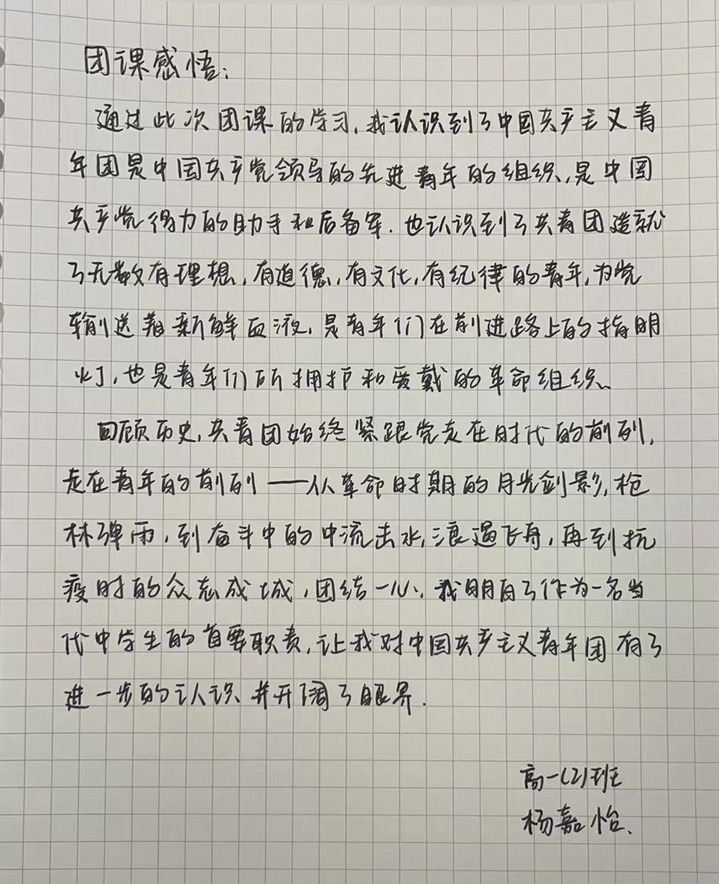 团课感悟:
通过此次团课的学习,我认识到了中国共产主义青
年团是中国共产党领导的先进青年的组织,是中国
共产党得力的助手和后备军.也认识到了共青团造就
了无数有理想,有道德,有文化,有纪律的青年,为党
输送着新鲜血液,是青年们在前进路上的指明
灯,也是青年们所拥护和爱戴的革命组织.
回顾历史,共青团始终紧跟党走在时代的前列,
走在青年的前列——从革命时期的月光剑影,枪
林弹雨,到奋斗中的中流击水,浪遏飞舟,再到抗
疫时的众志成城,团结一心.我明白了作为一名当
代中学生的首要职责,让我对中国共产主义青年团有了
进一步的认识并开阔了眼界.
高一(2)班
杨嘉怡.